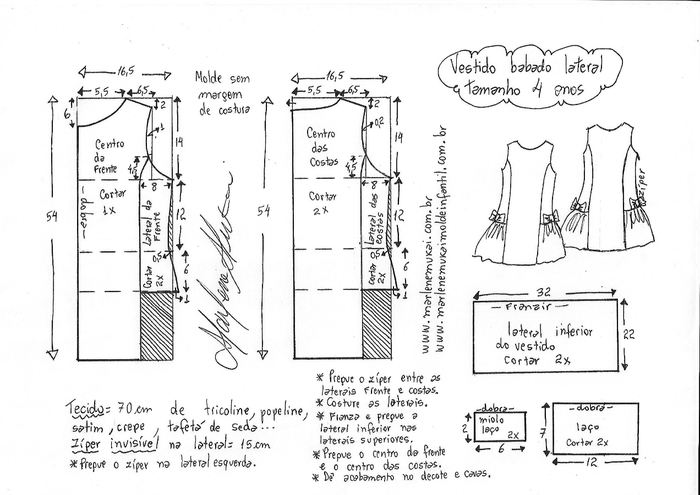 Vestido babado lateral
Tamanho 4 anos
Molde sem
margem
de costura
16,5
5,5
6,5
6
2
1
14
Centro
da
Frente
4,5
8
54
dobra
Cortar
1x
Lateral da
Frente
12
0,5
Cortar
2x
6
1
16,5
5,5
6,5
2
0,2
14
Centro
das
Costas
4,5
8
54
Cortar
2x
Lateral das
costas
12
0,5
Cortar
2x
6
1
www.marlenemukai.com.br
www.marlenemukaimoldeinfantil.com.br
zíper
32
Franzir
lateral inferior
do vestido
Cortar 2x
22
dobra
miolo
laço
2x
2
6
dobra
laço
Cortar 2x
7
12
Tecido= 70cm de tricoline, popeline,
satim, crepe, tafetá de seda...
Zíper invisível na lateral= 15cm
* Prepue o zíper na lateral esquerda.
* Prepue o zíper entre as
laterais Frente e costas.
* Costure as laterais.
* Franza e prepue a
lateral inferior nas
laterais superiores.
* Prepue o centro da frente
e o centro das costas.
* Dê acabamento no decote e cavas.